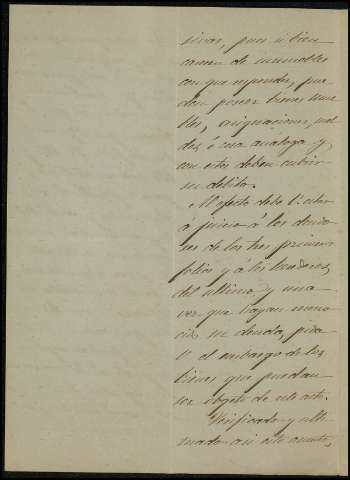 sivas, pues si bien
carecen de inmuebles
con que responder, pue-
dan poseer bienes mue-
bles, asignaciones, suel-
dos ó cosa análoga y
con estos deben cubrir
su débito.
Al efecto debe V. citar
á juicio á los deudo-
res de los tres primeros
folios y á los herederos
del último y una
vez que hayan recono-
cido su deuda, pida
V. el embargo de los
bienes que puedan
ser objeto de este acto.
Verificado y ulti-
mado así este asunto,